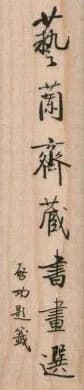 藝蘭齋藏書畫選
啟功題籤